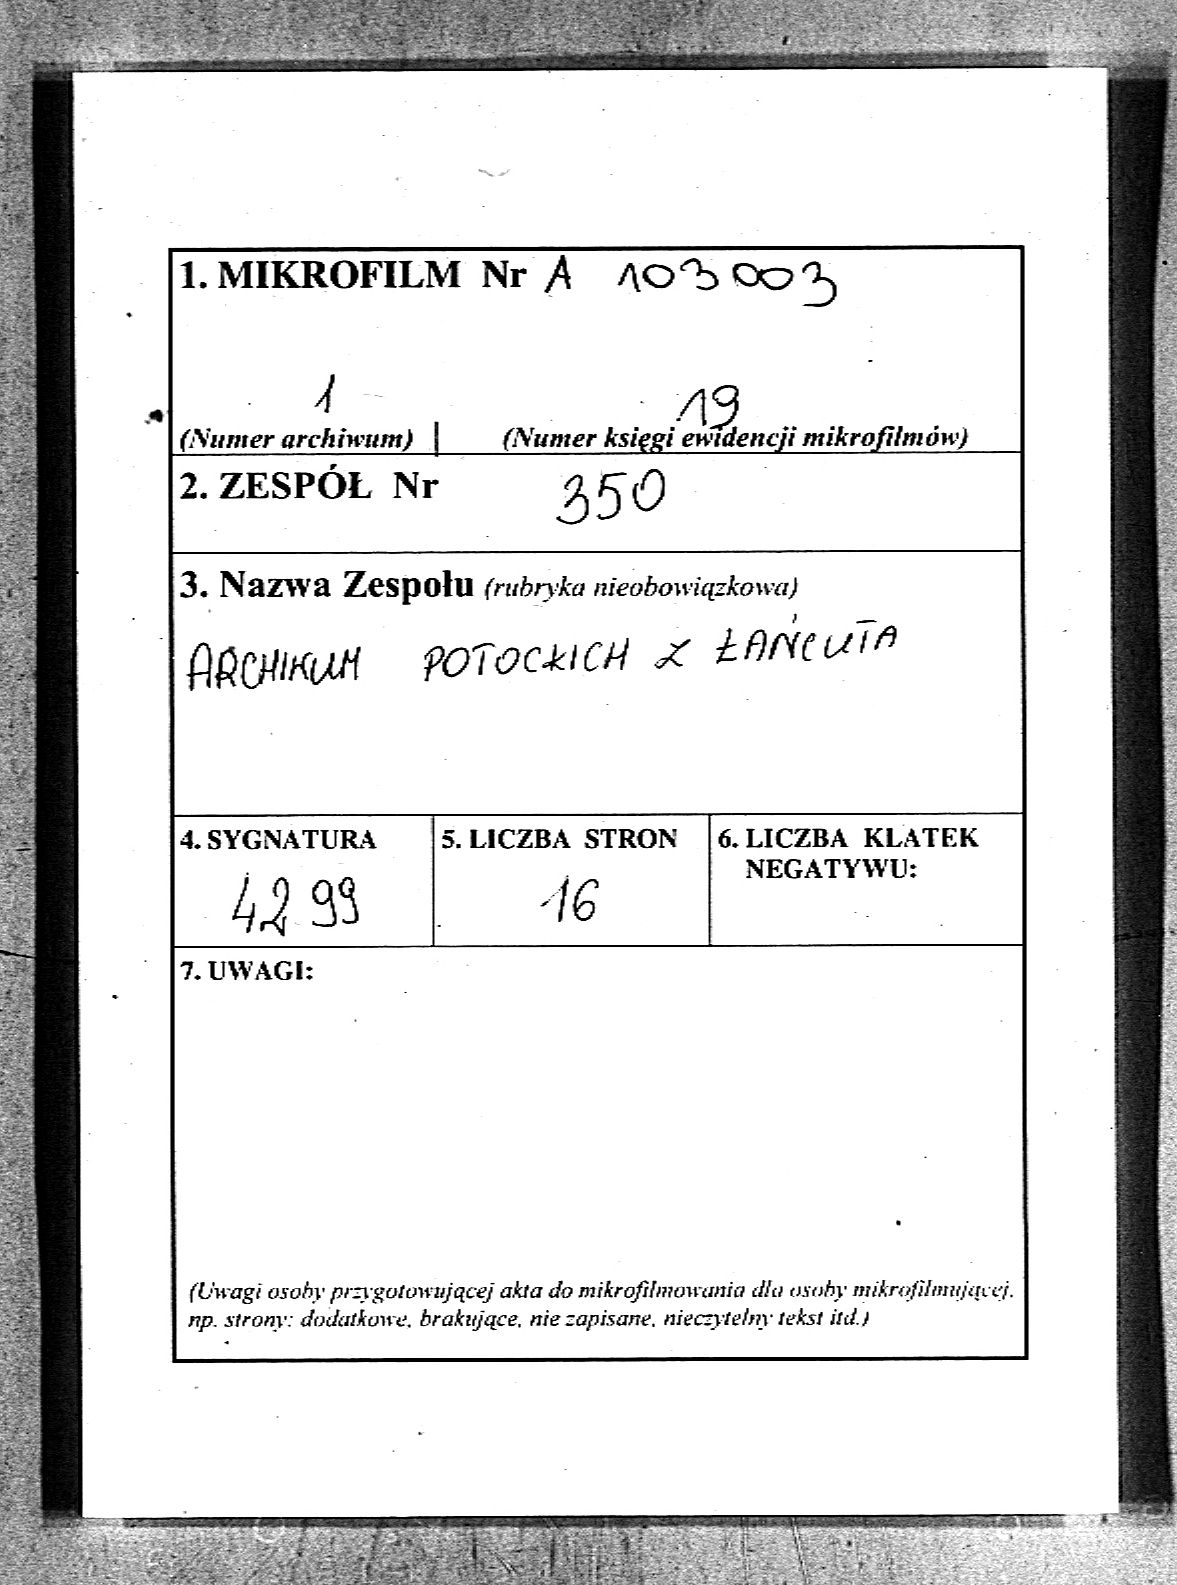 1. MIKROFILM Nr A 103003
1 19
(Numer archiwum) | (Numer księgi ewidencji mikrofilmów)
2. ZESPÓŁ Nr 350
3. Nazwa Zespołu (rubryka nieobowiązkowa)
ARCHIWUM POTOCKICH Z ŁAŃCUTA
4. SYGNATURA 5. LICZBA STRON 6. LICZBA KLATEK
NEGATYWU:
4299 16
7. UWAGI:
(Uwagi osoby przygotowującej akta do mikrofilmowania dla osoby mikrofilmującej.
np. strony: dodatkowe, brakujące, nie zapisane, nieczytelny tekst itd.)